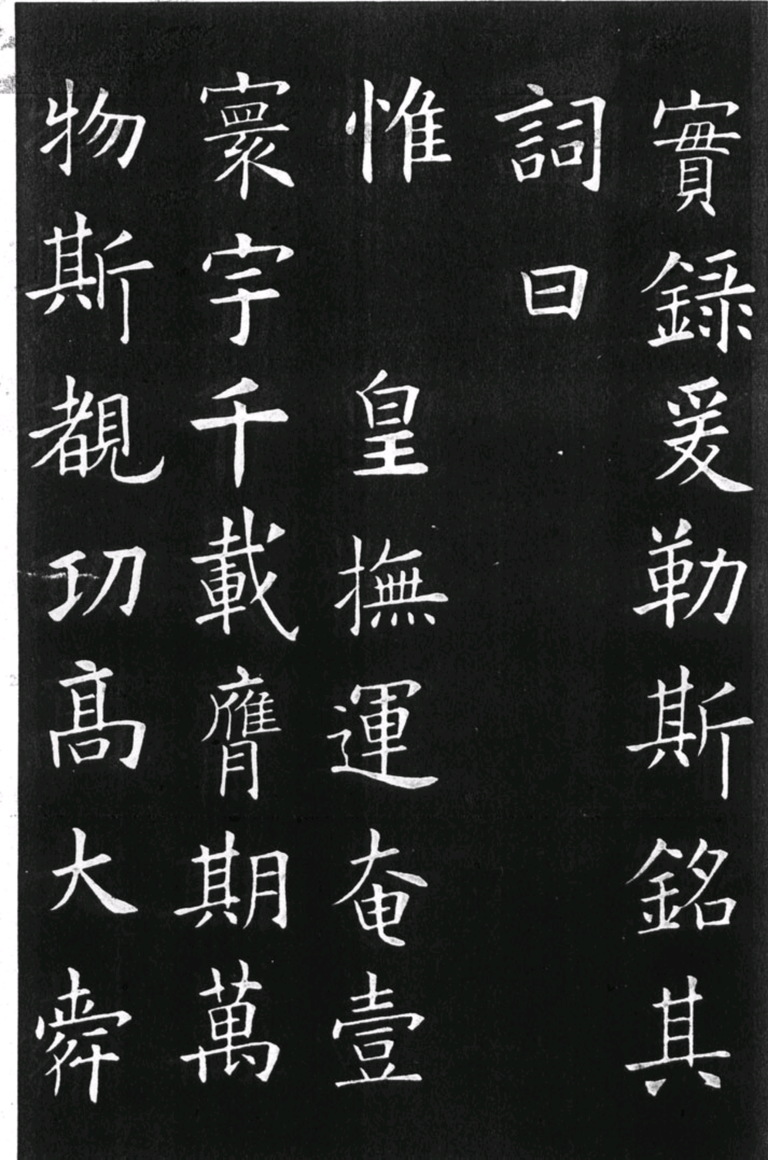 實錄爰勒斯銘其
詞曰
惟 皇撫運奄壹
寰宇千載膺期萬
物斯覩功高大舜